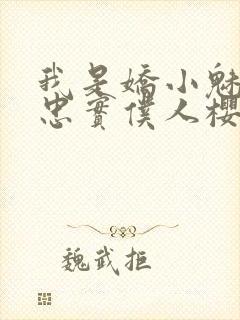 我是嬌小魅
忠實僕人櫻
魏武拒